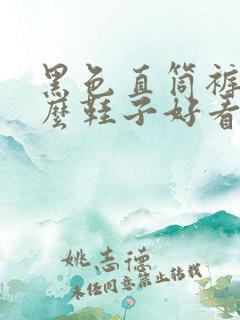 黑色直筒裤
麼鞋子好看
姚志德
未经同意禁止转载